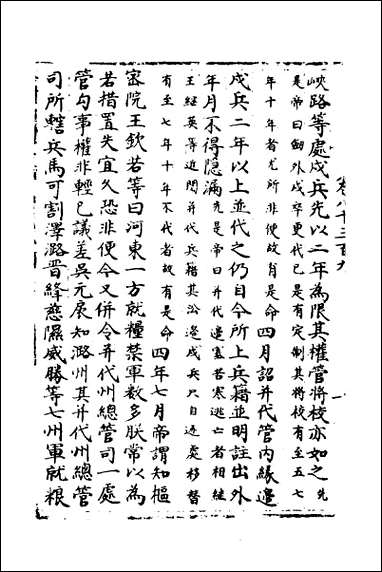 峽路等處戍兵先以二年為限其權管將校亦如之先
是帝曰向外戍卒更代已是有定制其將校有至五七
年十年者尤所非便故有是命四月詔并代管内緣邉
戍兵二年以上並代之仍自今所上兵籍並明註出外
年月不得隱漏先是帝曰并代邉寨苦寒逃亡者相継
王經英等近閲并代兵籍其沿邉戍兵只自近處移替
有至七年十年不代者故有是命四年七月帝謂知樞
宻院王欽若等曰河東一方就糧禁軍數多朕常以為
若措置失宜久恐非便今又併令并代州總管司一處
管勾事權非輕已議差吳元扆知潞州其并代州總管
司所轄兵馬可割澤潞晋絳慈隰威勝等七州軍就粮